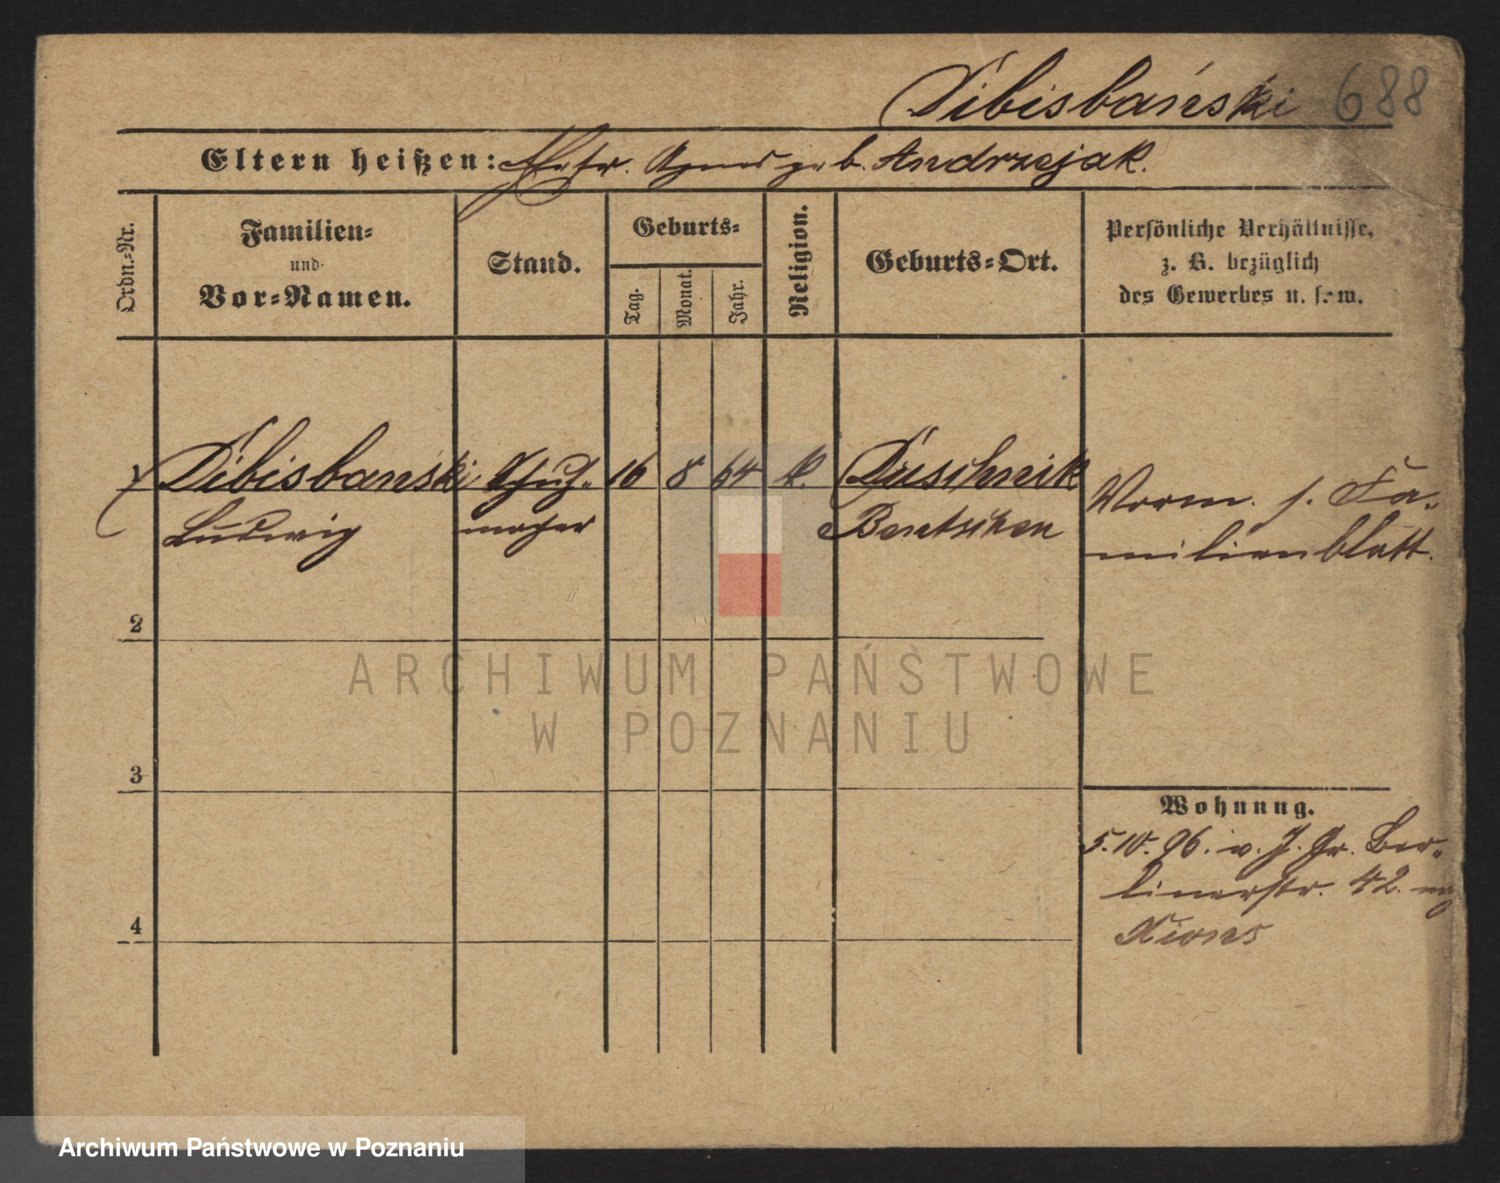 Dibisbański 688
Eltern heißen: Agnes geb. Andrzejak.
Ordn.-Nr.
Familien-
und
Vor-Namen.
Stand.
Geburts-
Tag.
Monat.
Jahr.
Religion.
Geburts-Ort.
Persönliche Verhältnisse,
z. B. bezüglich
des Gewerbes u. s. w.
Dibisbański Schuh- 16 8 64 k.
Ludwig macher Bentschen
Vorm. s. Fa-
milienblatt.
2
3
4
Wohnung.
5.10.96. v. J. Gr. Ber-
linerstr. 42.
Xions
ARCHIWUM PAŃSTWOWE
W POZNANIU
Archiwum Państwowe w Poznaniu